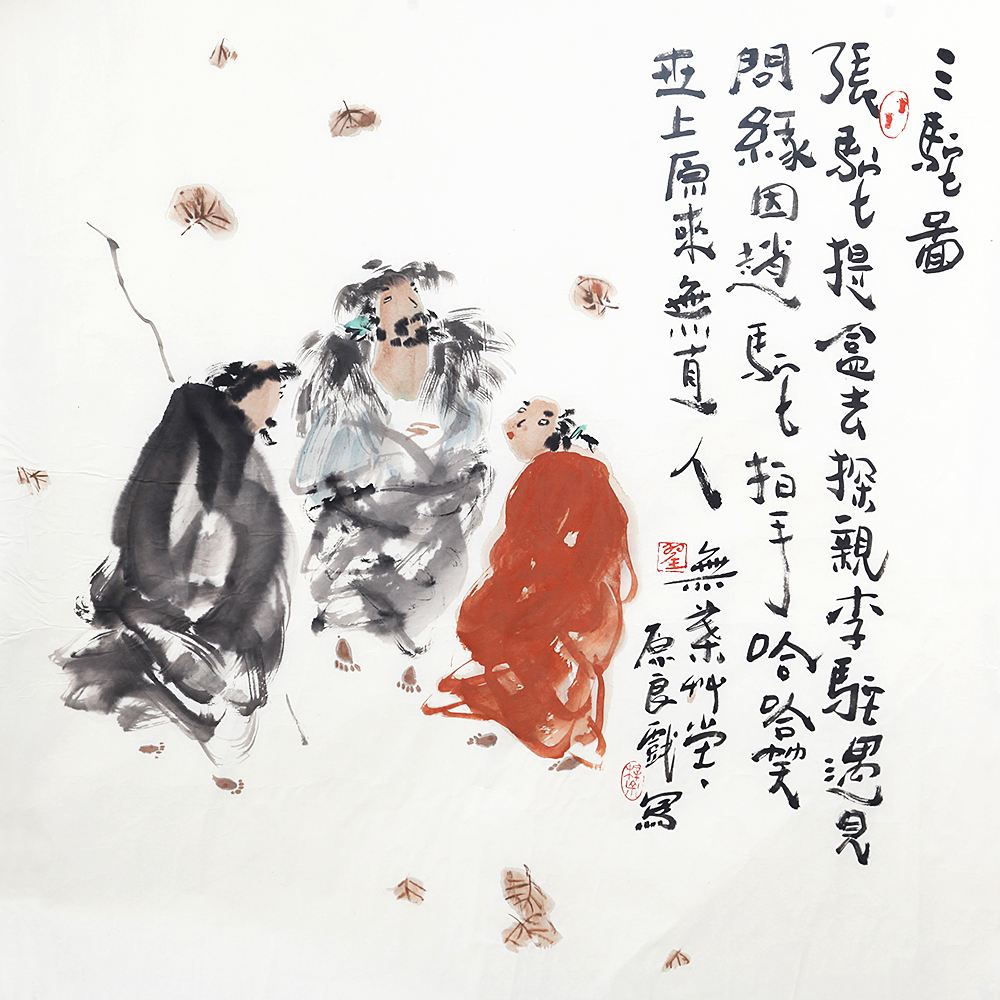 三駝圖
張駝提盒去探親李駝遇見
問緣因趙駝拍手哈哈笑
世上原來無直人
無葉艸堂、
原良戲寫
翟